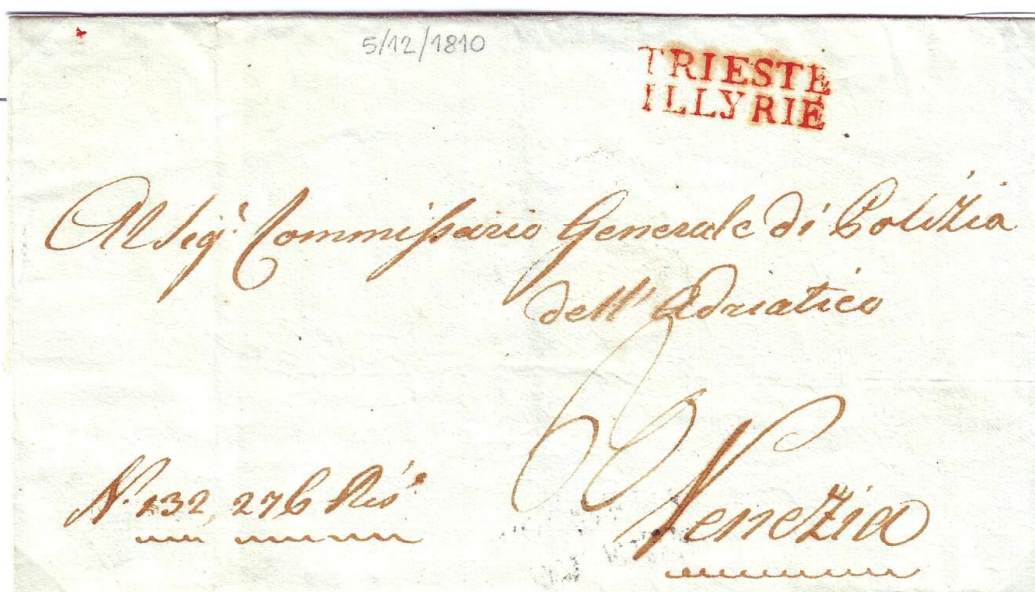 5/12/1810
TRIESTE
ILLYRIE
Al Sigr. Commissario Generale di Polizia
dell' Adriatico
Venezia
N. 132, 276 Risº